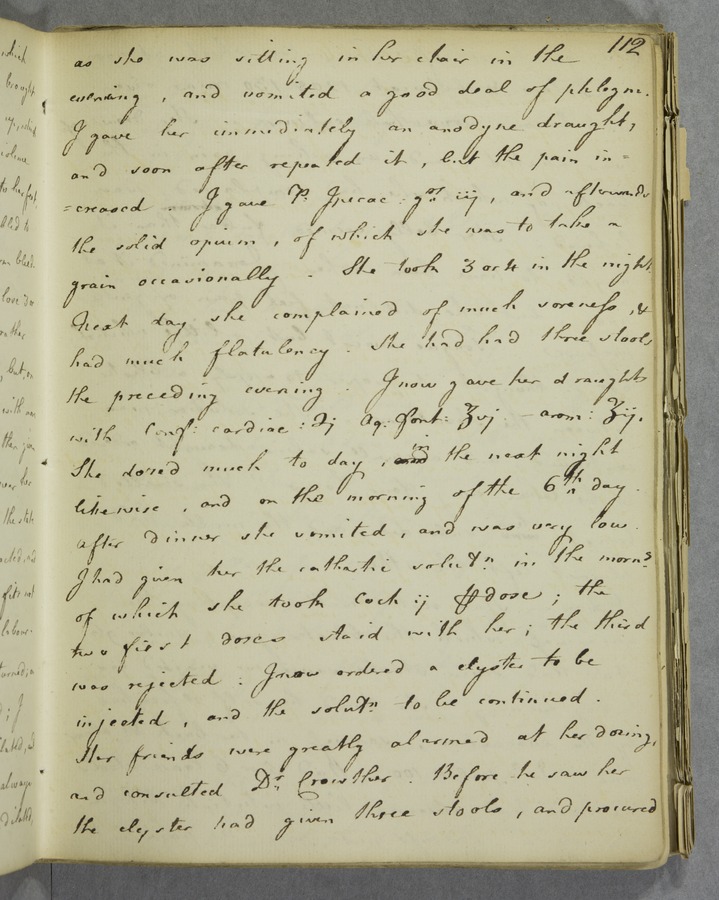 112
as she was sitting in her chair in the
evening, and vomited a good deal of phlegm.
I gave her immediately an anodyne draught,
and soon after repeated it, but the pain in=
=creased. I gave P. Ipecac: grs iij, and afterwards
the solid opium, of which she was to take a
grain occasionally. She took 3 or 4 in the night.
Next day she complained of much soreness, &
had much flatulency. She had had three stools
the preceding evening. I now gave her draughts
with Conf: cardiac: ℈j Aq: font: ʒvj - arom: ʒij.
She dozed much to day, in the next night
likewise, and on the morning of the 6th day.
after dinner she vomited, and was very low.
I had given her the cathartic solutn in the morng
of which she took Coch ij ℔ dose; the
two first doses staid with her; the third
was rejected. I now ordered a clyster to be
injected, and the solutn to be continued.
Her friends were greatly alarmed at her dozing,
and consulted Dr Crowther. Before he saw her
the clyster had given three stools, and procured
which
brought